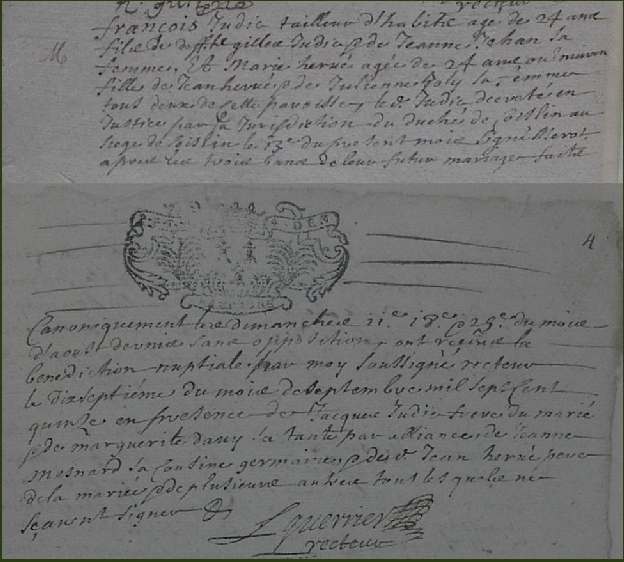 recteur
françois Judic tailleur d'habits age de 24 ans
fils de defft gilles Judic & de Jeanne Jehan sa
M
femme, Et Marie hervé agée de 24 ans ou environ
fille de Jean hervé & de Julienne Joly sa femme
tous deux de cette paroisse, led Judic decreté en
Justice par la Jurisdiction du duché de Josslin au
siege de Josslin le 13e du present mois signé
apres les trois bans de leur futur mariage faits
4
Canoniquement les dimanches 11e 18e & 25e du mois
d'aoust dernier sans opposition, ont reçue la
benediction nuptiale par moy soussigné recteur
le dixseptiéme du mois de septembre mil sept Cent
quinze en presence de Jacques Judic frere du marié
& de marguerite dany sa tante par alliance, de Jeanne
mesnard sa cousine germaine, & dud Jean hervé pere
de la mariée & de plusieurs autres tous lesquels ne
sçavent signer
L guerrier
recteur